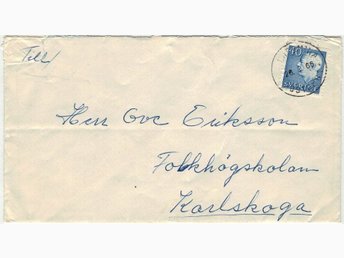 Till/
Herr Ove Eriksson
Folkhögskolan
Karlskoga